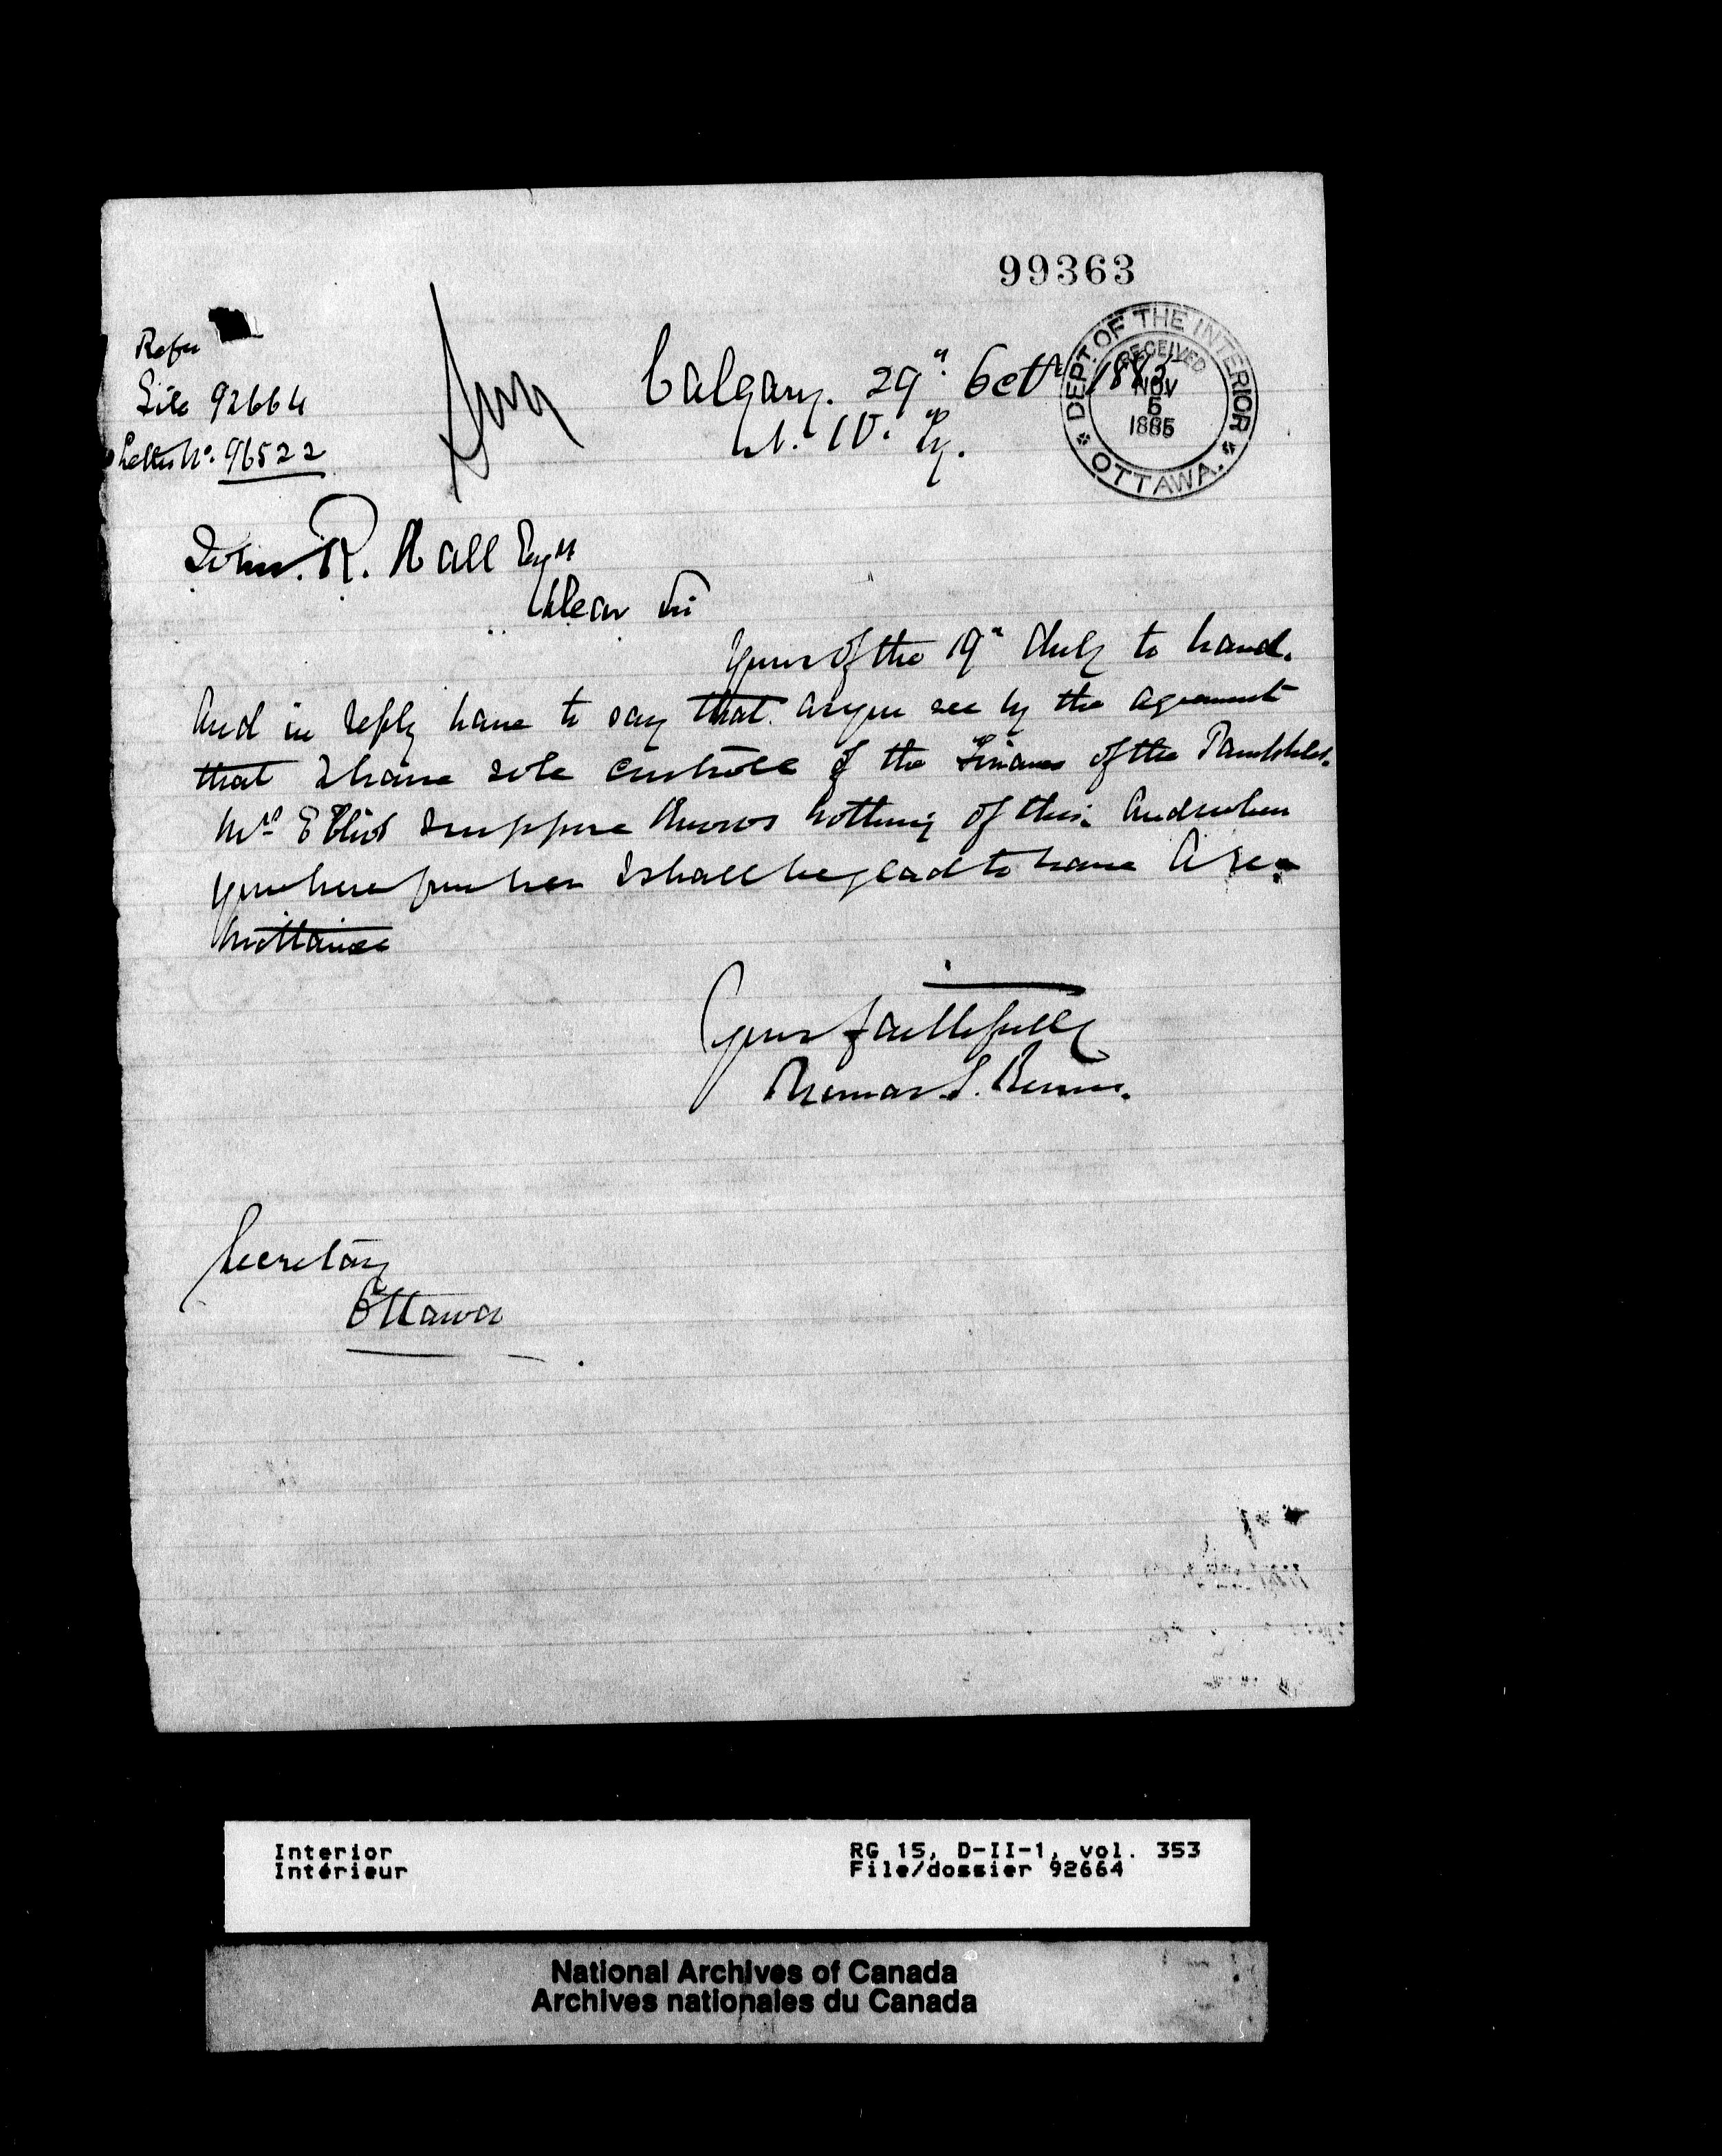 99363
Refer
File 92664
Letter No. 96522
Calgary. 29" Octr 188
N. W. Ty.
DEPT. OF THE INTERIOR
RECEIVED
NOV
5
1885
OTTAWA.
John. R. Hall Esqr
Dear Sir
Yours of the 19" duly to hand.
And in reply have to say that as you see by the agreement
that I have sole controle of the Finances of the Pamphlet.
Mrs Elliot I suppose knows nothing of this. And when
you hear from her I shall be glad to have a re-
mittance
Yours faithfully
Thomas S.
Secretary
Ottawa
Interior
Intérieur
RG 15, D-II-1, vol. 353
File/dossier 92664
National Archives of Canada
Archives nationales du Canada